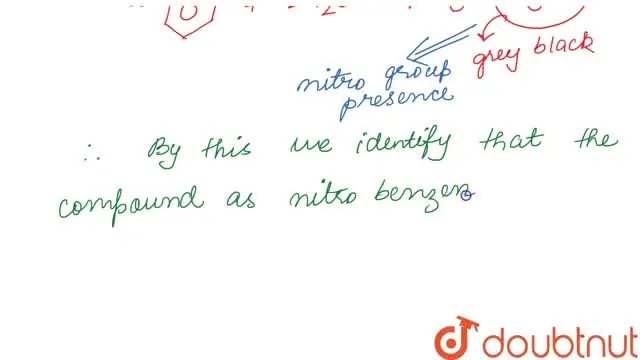 grey black
nitro group
presence
∴ By this we identify that the
compound as nitro benzen
doubtnut